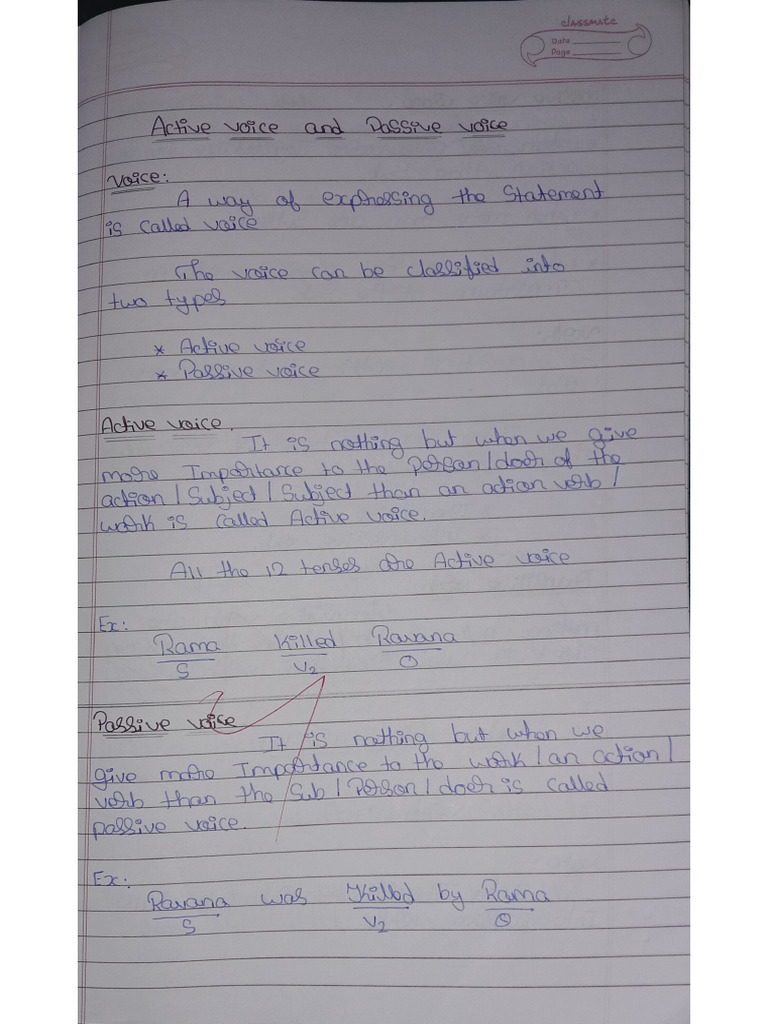 classmate
Date
Page
Active voice and Passive voice
Voice:
A way of expressing the Statement
is called voice
The voice can be classified into
two types
* Active voice
* Passive voice
Active voice.
It is nothing but when we give
more Importance to the person/doer of the
action/Subject/Subject than an action verb/
work is called Active voice.
All the 12 tenses are Active voice
Ex:
Rama Killed Ravana
S V2 O
Passive voice
It is nothing but when we
give more Importance to the work/an action/
verb than the Sub/Person/doer is called
passive voice.
Ex:
Ravana was Killed by Rama
S V2 O